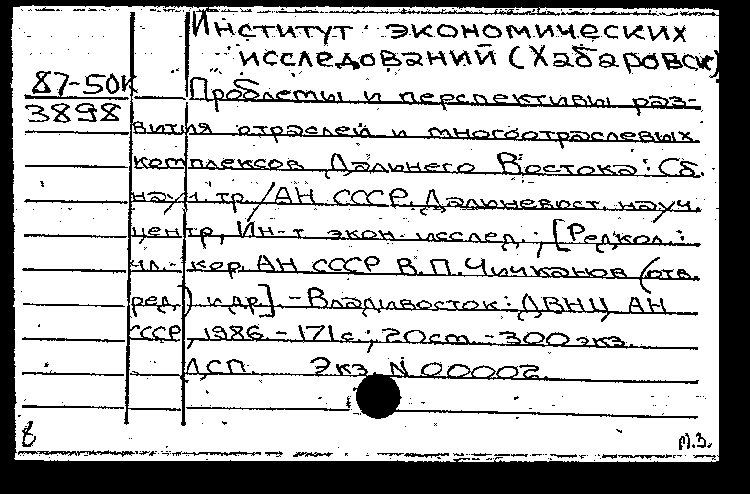 Институт экономических
исследований (Хабаровск)
87-50К
3898
Проблемы и перспективы раз-
вития отраслей и многоотраслевых
комплексов Дальнего Востока: Сб.
науч. тр. / АН СССР. Дальневост. науч.
центр, Ин-т экон. исслед.; [Редкол.:
чл.-кор. АН СССР В.П. Чичканов (отв.
ред.) и др]. - Владивосток: ДВНЦ АН
СССР, 1986. - 171 с.; 20 см. - 300 экз.
ДСП. Экз. N 00002
8
м.з.